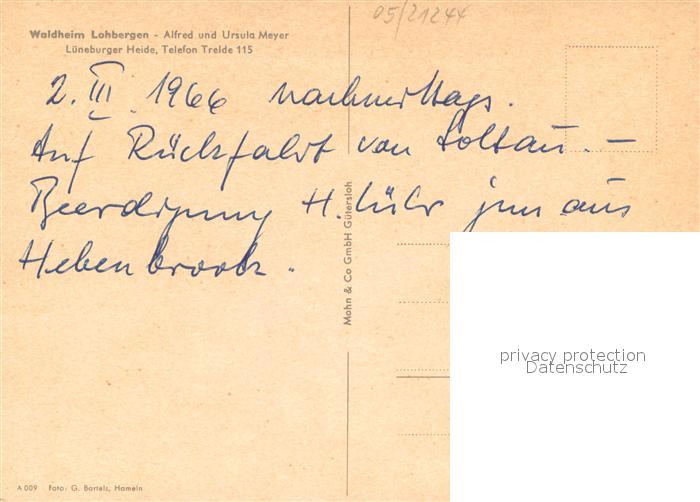 05/21244
Waldheim Lohbergen - Alfred und Ursula Meyer
Lüneburger Heide, Telefon Trelde 115
2. III. 1966 nachmittags.
Auf Rückfahrt von Soltau. -
Beerdigung H. Lühr jun aus
Hebenbrook.
Mohn & Co GmbH Gütersloh
privacy protection
Datenschutz
A 009 Foto: G. Bartels, Hameln